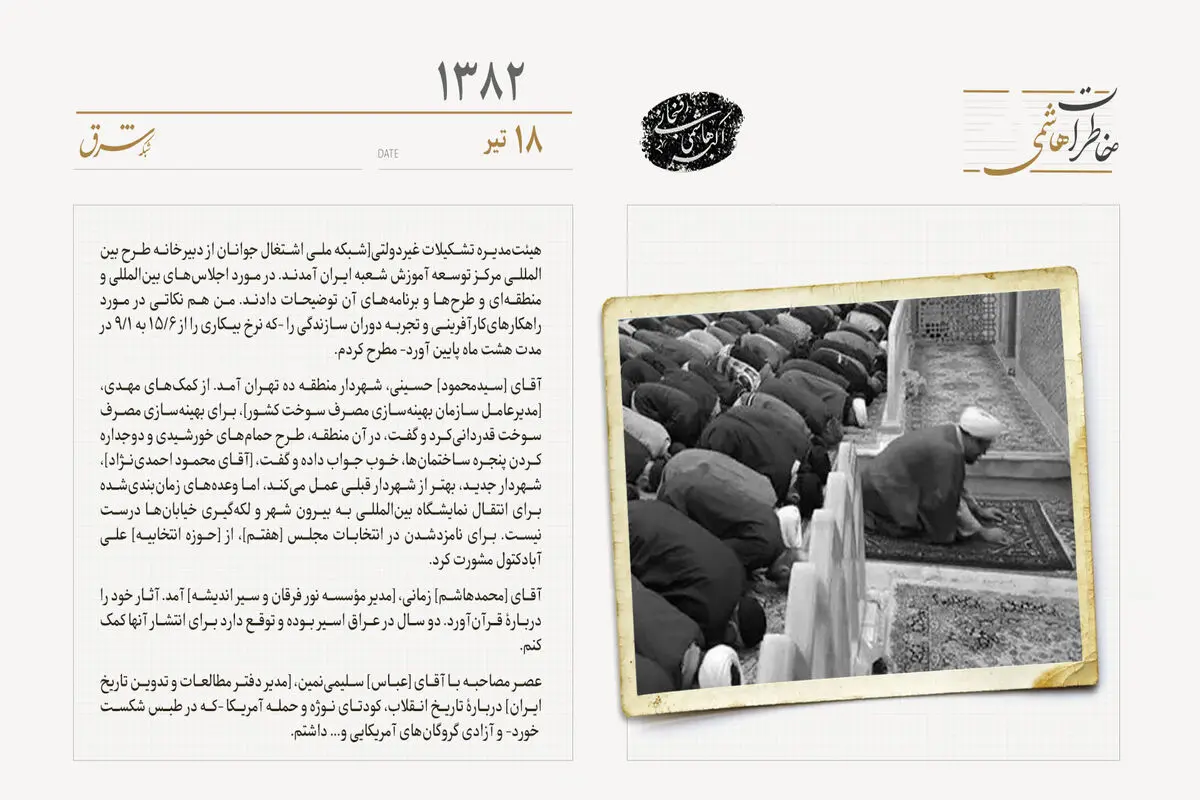 خاطرات هاشمی
اکبر هاشمی رفسنجانی
۱۳۸۲
۱۸ تیر
DATE
شبکه شرق
هیئت‌مدیره تشکیلات غیردولتی[شبکه ملی اشتغال جوانان از دبیرخانه طرح بین
المللی مرکز توسعه آموزش شعبه ایران آمدند. در مورد اجلاس‌های بین‌المللی و
منطقه‌ای و طرح‌ها و برنامه‌های آن توضیحات دادند. من هم نکاتی در مورد
راهکارهای‌کارآفرینی و تجربه دوران سازندگی را -که نرخ بیکاری را از ۱۵/۶ به ۹/۱ در
مدت هشت ماه پایین آورد- مطرح کردم.
آقای [سیدمحمود] حسینی، شهردار منطقه ده تهران آمد. از کمک‌های مهدی،
[مدیرعامل سازمان بهینه‌سازی مصرف سوخت کشور]، برای بهینه‌سازی مصرف
سوخت قدردانی‌کرد و گفت، در آن منطقه، طرح حمام‌های خورشیدی و دوجداره
کردن پنجره ساختمان‌ها، خوب جواب داده و گفت، [آقای محمود احمدی‌نژاد]،
شهردار جدید، بهتر از شهردار قبلی عمل می‌کند، اما وعده‌های زمان‌بندی‌شده
برای انتقال نمایشگاه بین‌المللی به بیرون شهر و لکه‌گیری خیابان‌ها درست
نیست. برای نامزدشدن در انتخابات مجلس [هفتم]، از [حوزه انتخابیه] علی
آبادکتول مشورت کرد.
آقای [محمدهاشم] زمانی، [مدیر مؤسسه نور فرقان و سیر اندیشه] آمد. آثار خود را
دربارهٔ قرآن‌آورد. دو سال در عراق اسیر بوده و توقع دارد برای انتشار آنها کمک
کنم.
عصر مصاحبه با آقای [عباس] سلیمی‌نمین، [مدیر دفتر مطالعات و تدوین تاریخ
ایران] دربارهٔ تاریخ انقلاب، کودتای نوژه و حمله آمریکا -که در طبس شکست
خورد- و آزادی گروگان‌های آمریکایی و... داشتم.